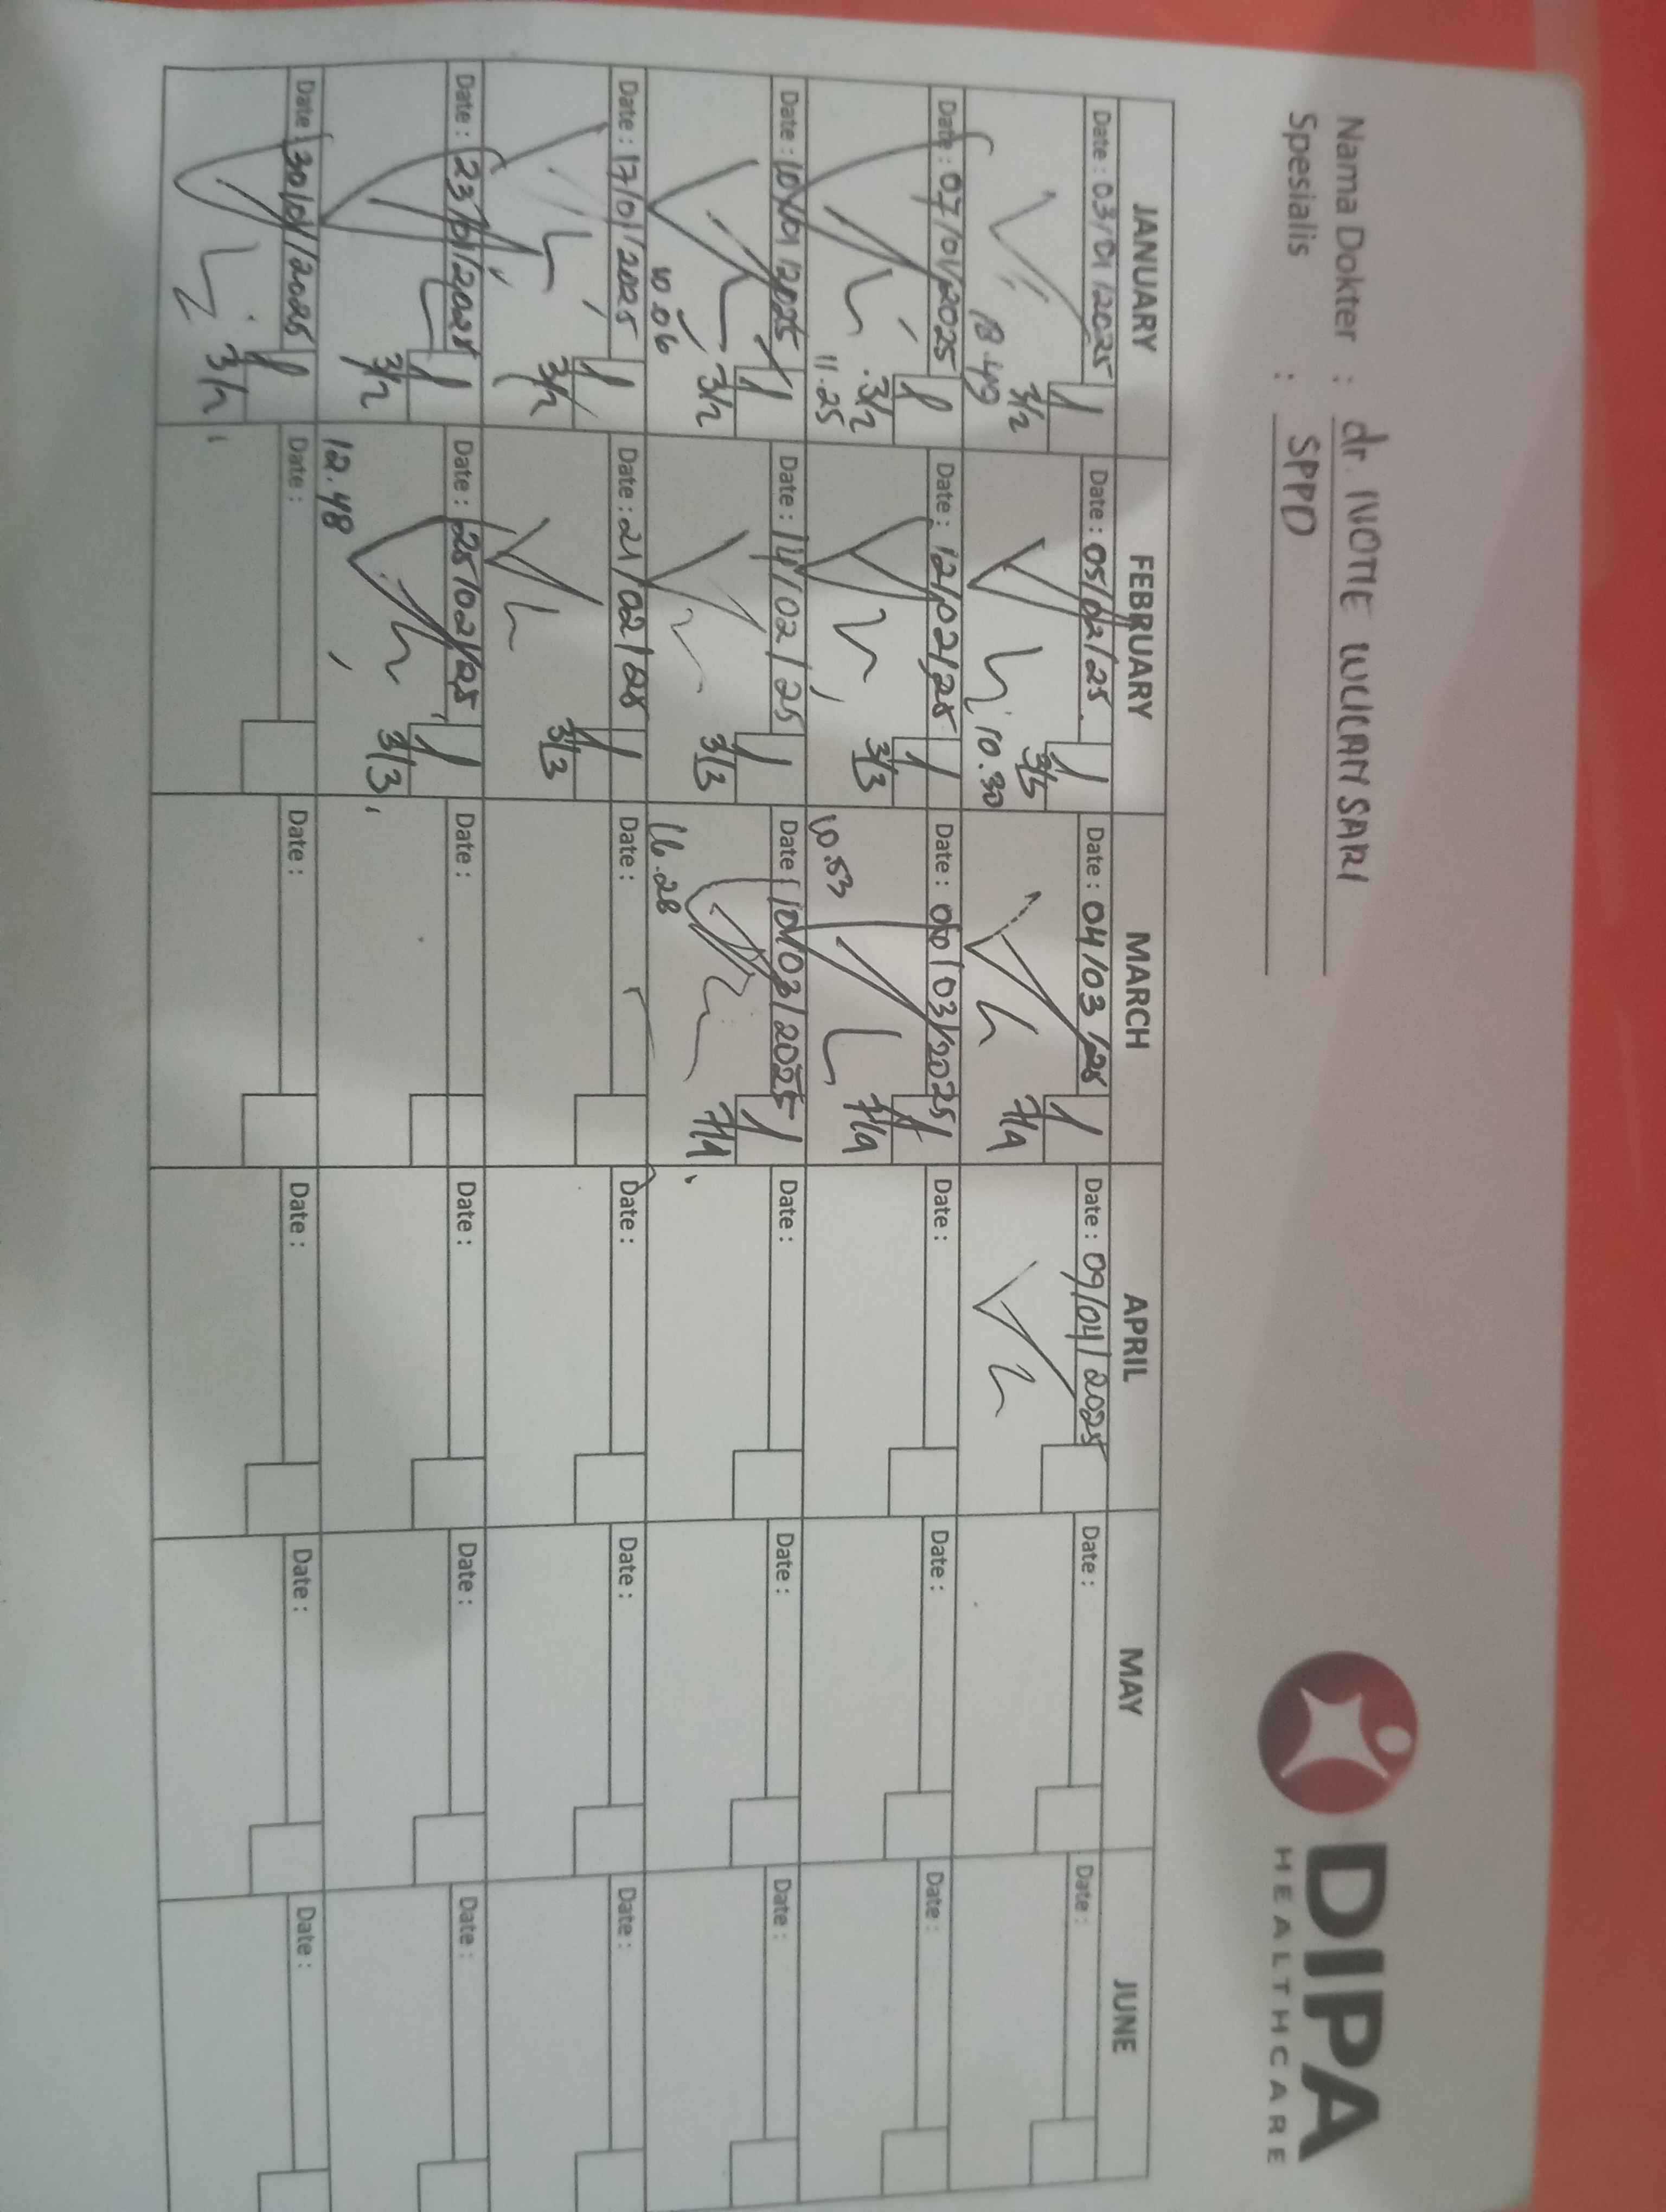 Nama Dokter : dr. IVOTIE WULAN SARI
Spesialis : SPPD
DIPA
HEALTHCARE
JANUARY FEBRUARY MARCH APRIL MAY JUNE
Date : 03/01/2025 Date : 05/02/25 Date : 04/03/25 Date : 09/04/2025 Date : Date :
3/2 7/4
18.49 10.30
Date : 07/01/2025 Date : 12/02/25 Date : 06/03/2025 Date : Date : Date :
3/2 3/3 7/4
11.25 10.53
Date : 10/01/2025 Date : 14/02/25 Date : 10/03/2025 Date : Date : Date :
3/2 3/3 7/4
10.06 16.28
Date : 17/01/2025 Date : 21/02/25 Date : Date : Date : Date :
3/2 3/3
Date : 23/01/2025 Date : 25/02/25 Date : Date : Date : Date :
3/2 3/3
12.48
Date : 30/01/2025 Date : Date : Date : Date : Date :
3/2